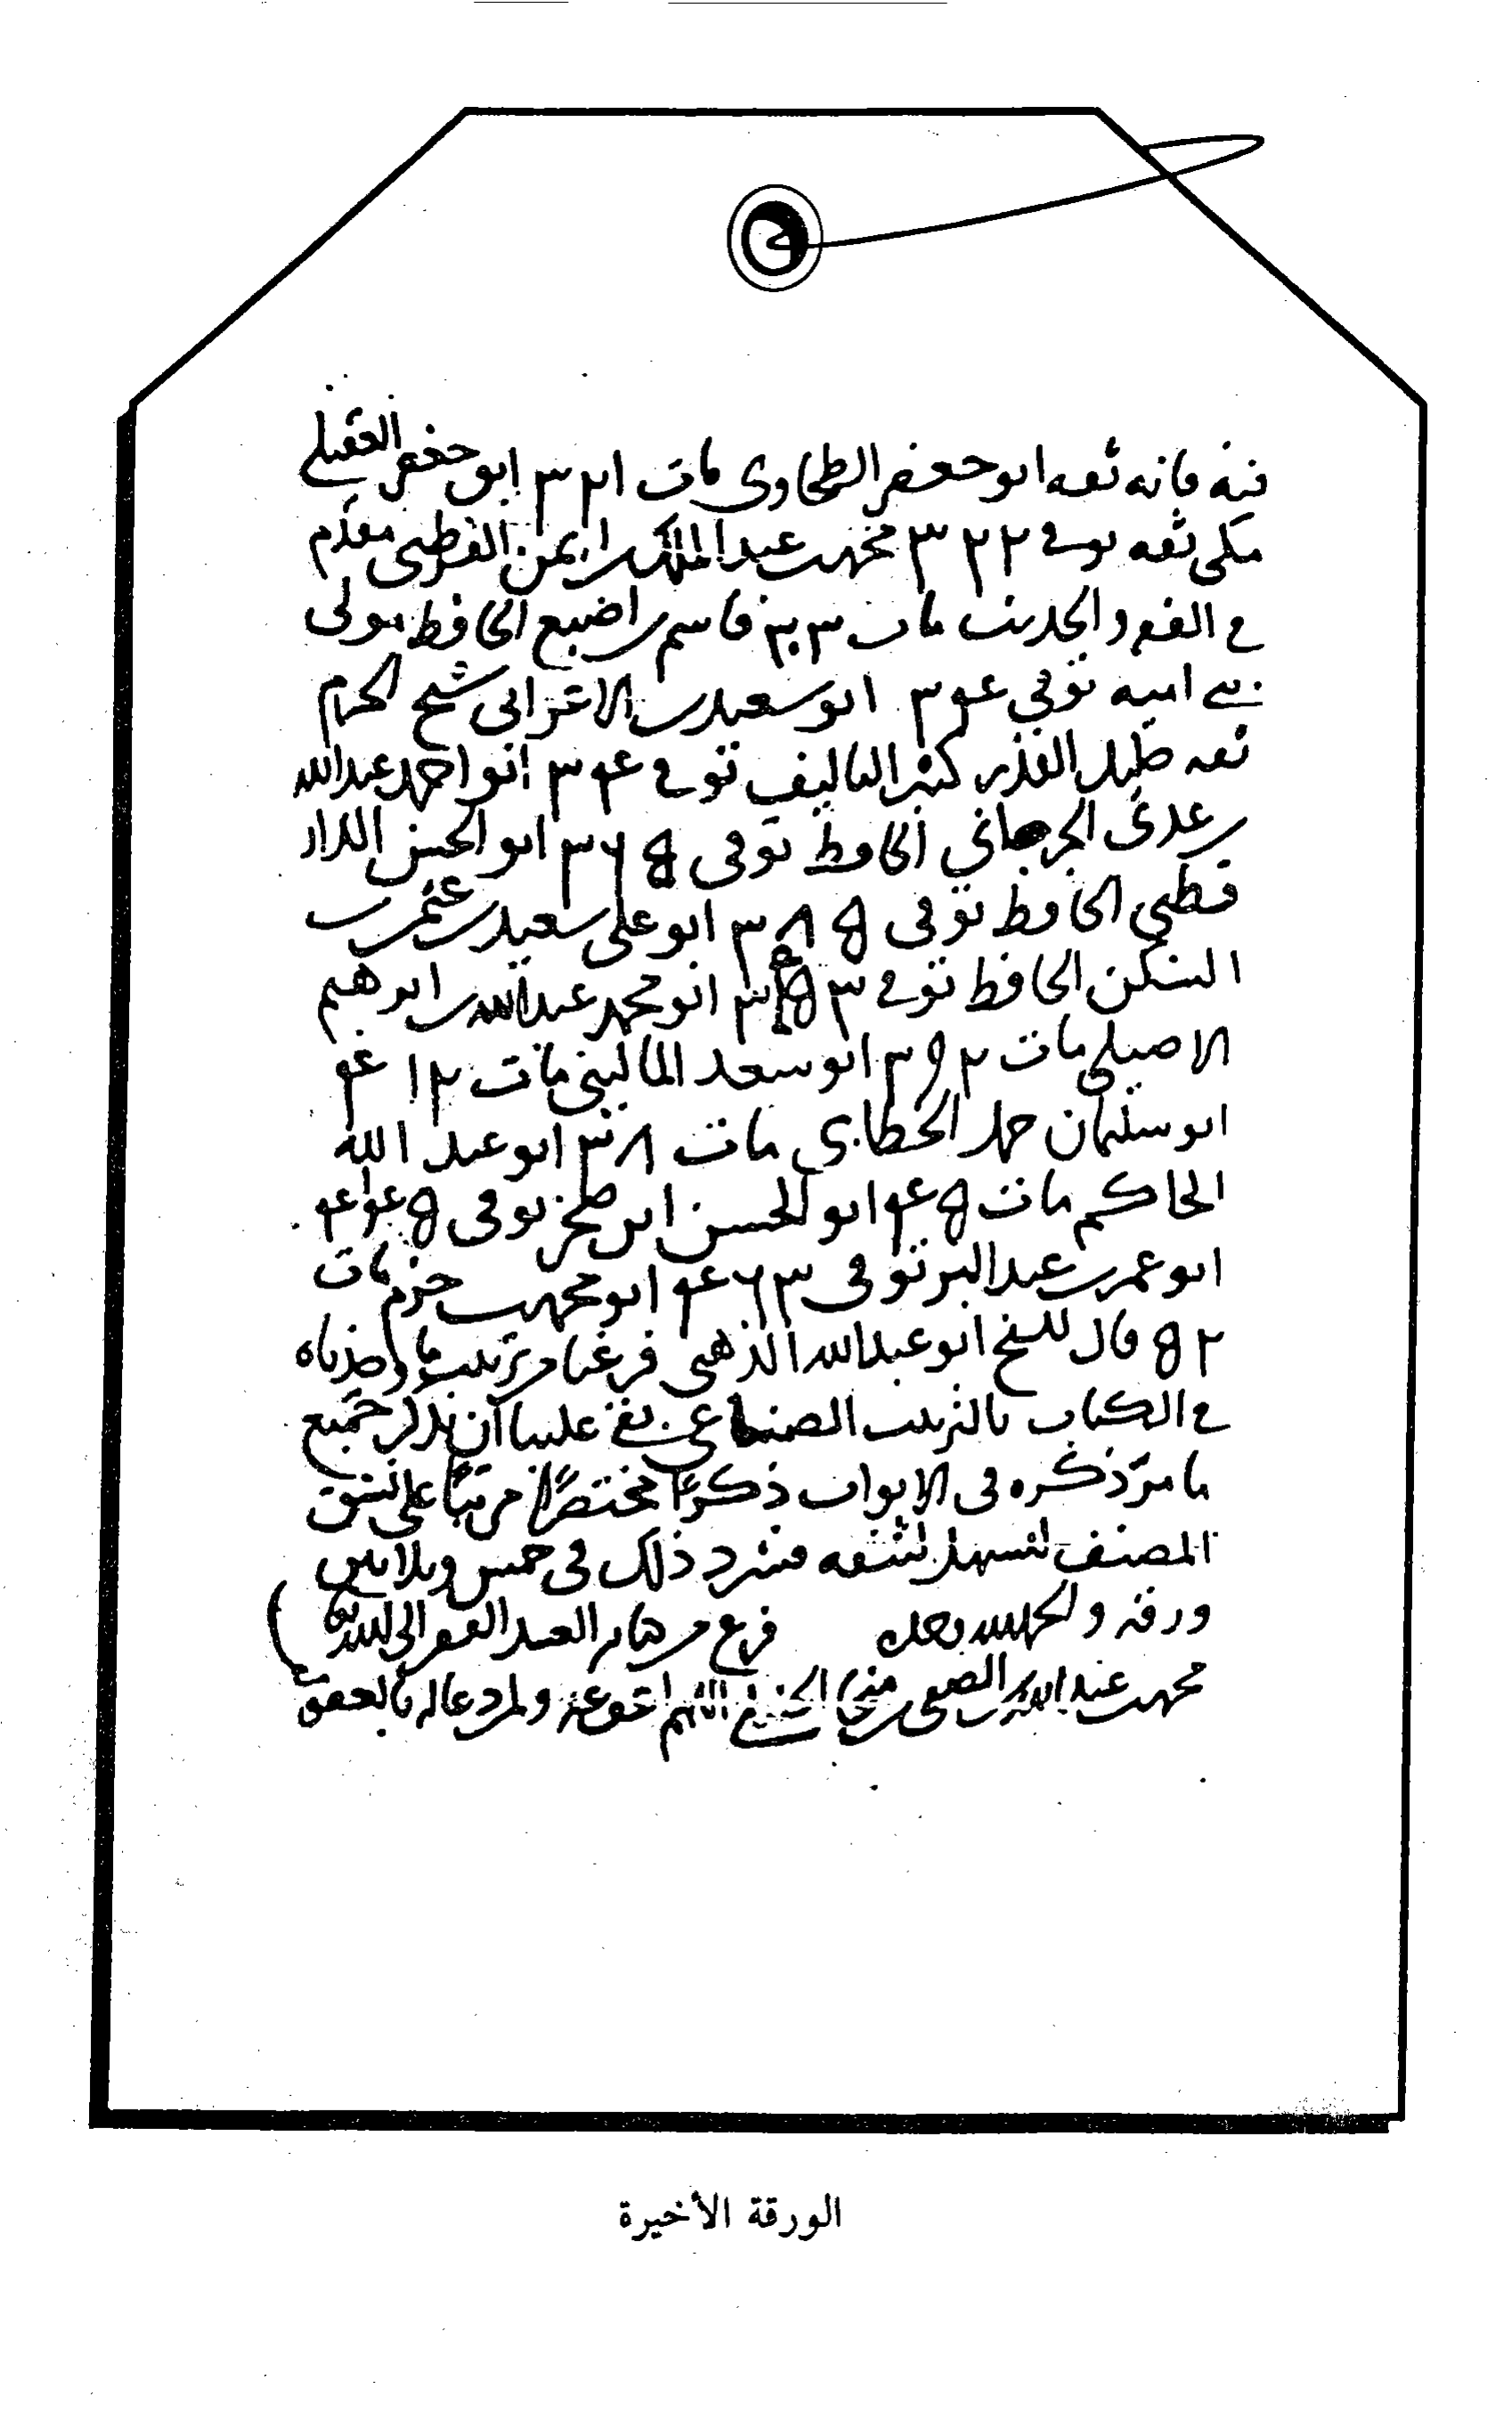 فيه فانه ثقه ابو جعفر الطحاوى مات ٣٢١ ابو جعفر العقيلي
مكى ثقه توفي ٣٢٢ محمد بن عبد الملك بن ايمن القرطبى مقدم
في الفقه والحديث مات ٣٣٠ قاسم بن اصبغ الحافظ مولى
بني اميه توفي ٣٤٠ ابو سعيد بن الاعرابى شيخ الحرم
ثقه جليل القدر كثير التاليف توفي ٣٤٠ ابو احمد عبد الله
بن عدى الجرجاني الحافظ توفى ٣٦٥ ابو الحسن الدار
قطني الحافظ توفى ٣٨٥ ابو على سعيد بن عثمن بن
السكن الحافظ توفي ٣٥٣ ابو محمد عبد الله بن ابرهيم
الاصيلى مات ٣٩٢ ابو سعد المالينى مات ٤١٢
ابو سليمان حمد الخطابى مات ٣٨ ابو عبد الله
الحاكم مات ٤٥ ابو الحسن ابن توفى
ابو عمر بن عبد البر توفى ٤٦٣ ابو محمد بن حزم مات
٥٢ قال الشيخ ابو عبد الله الذهبى فرغنا من ترتيب ما وجدناه
في الكتاب بالترتيب الصناعى بقى علينا ان نذكر جميع
ما مر ذكره فى الابواب ذكرًا مختصرًا مرتبًا على نسق
المصنف لتسهل كشفه فسرد ذلك فى خمس وثلاثين
ورقه والحمد لله وحده فرغ من هنا العبد الفقير الى الله
محمد بن عبد الله بن الصفى بن منجا اللهم اعف عنه ولمن دعا له بالعفو
الورقة الأخيرة